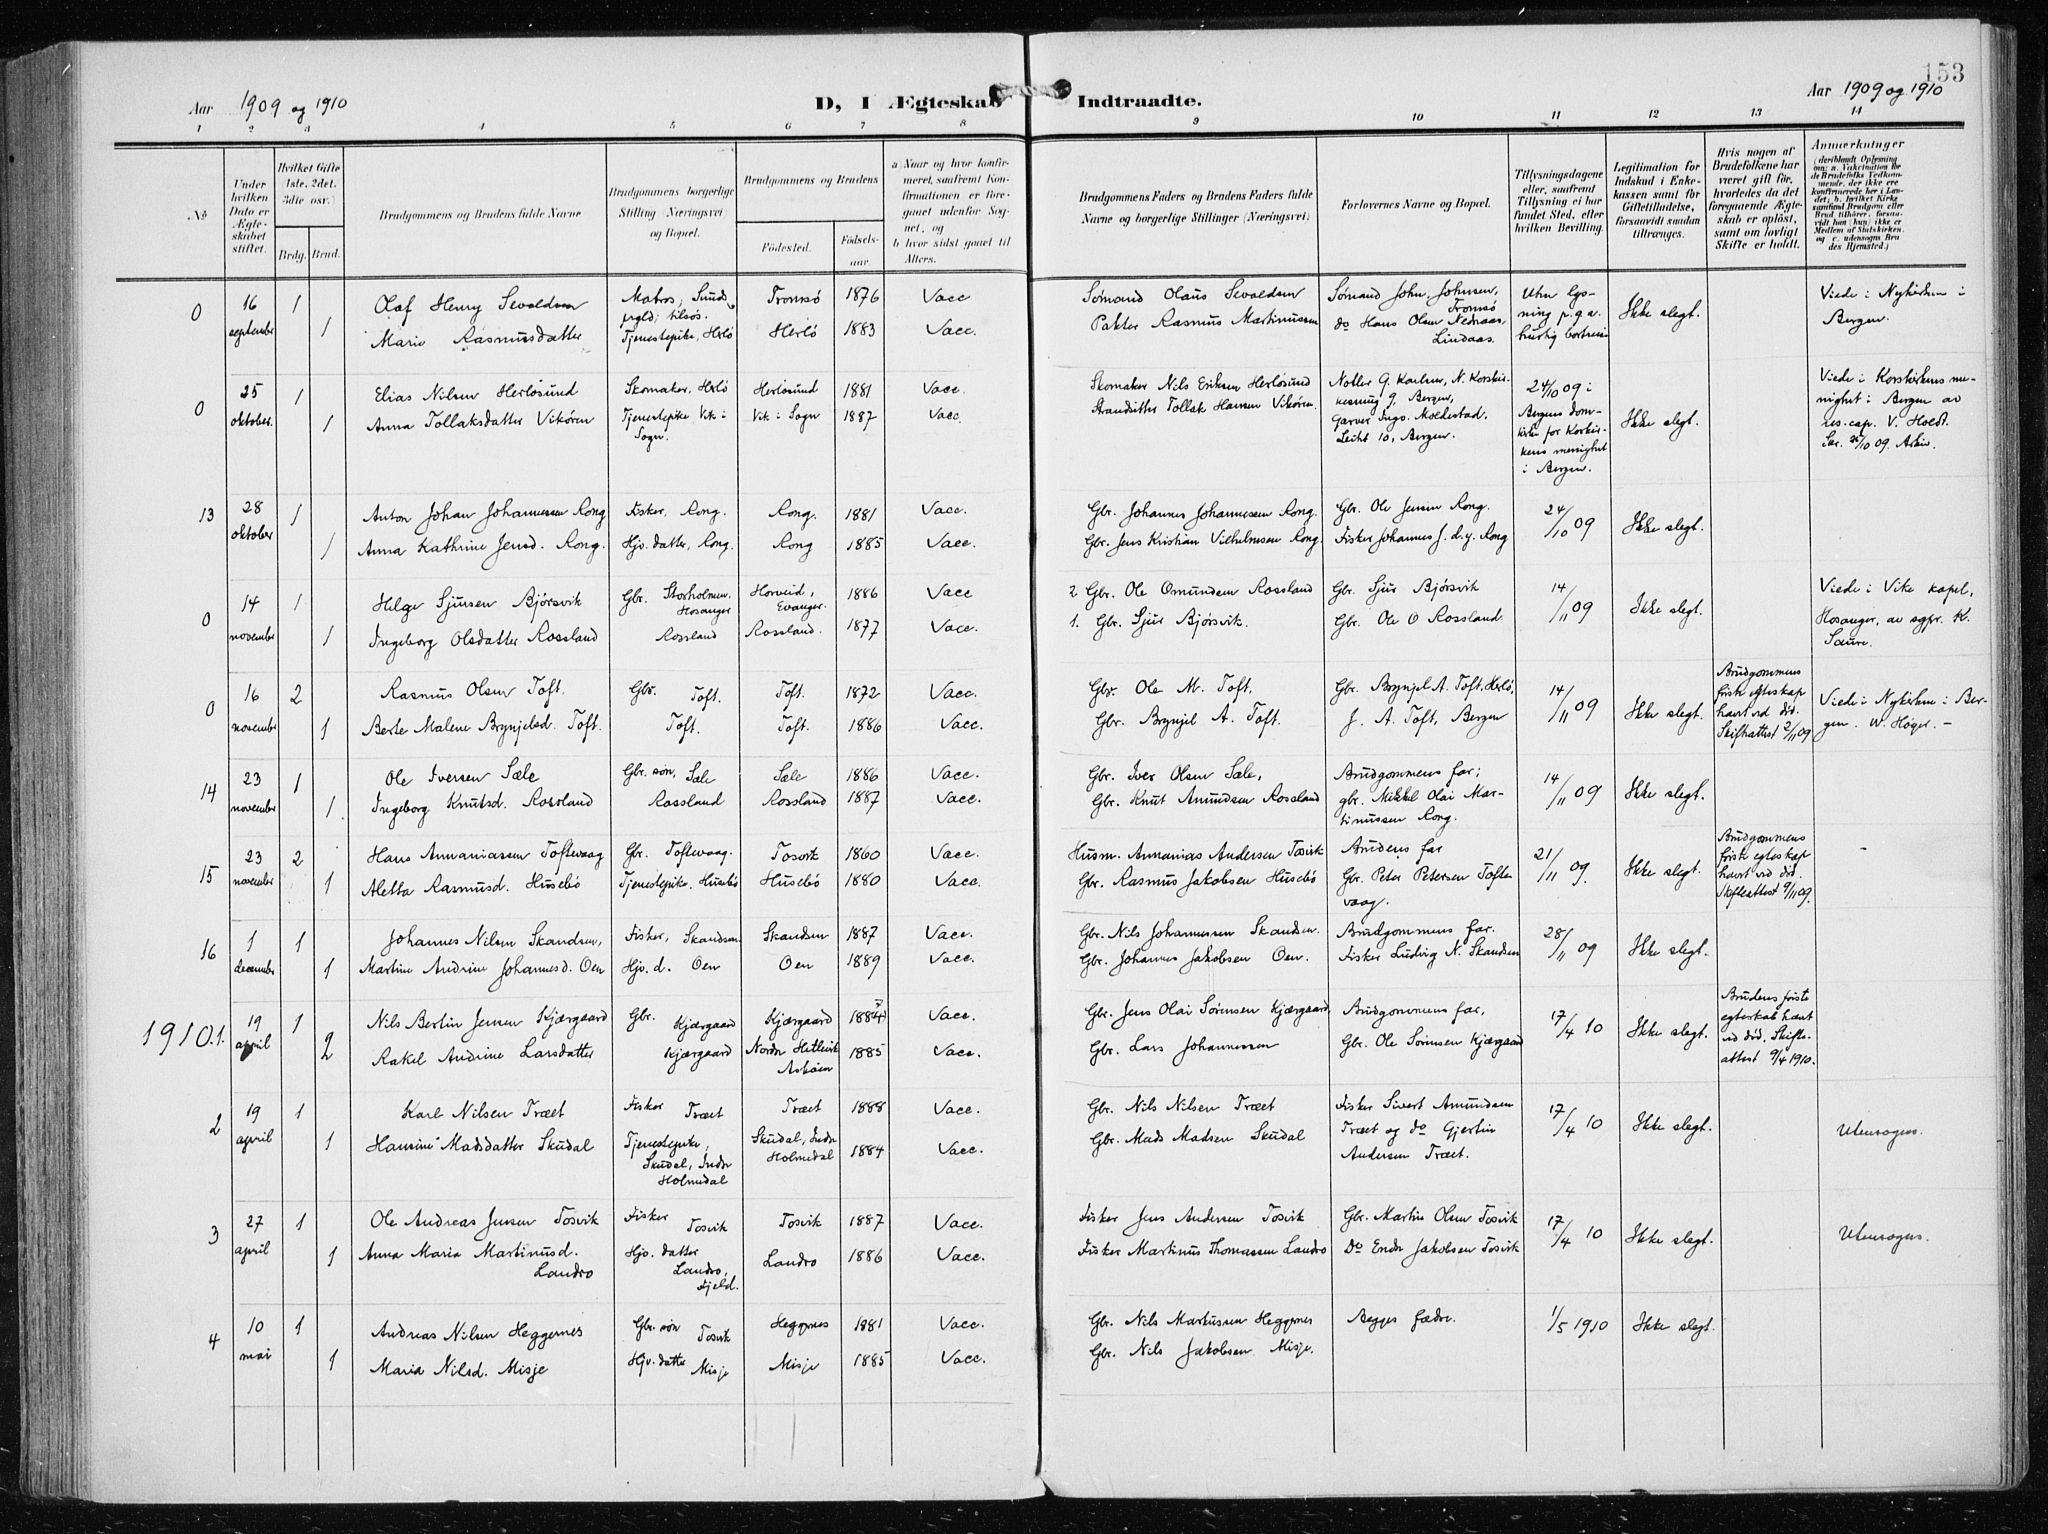 153
Aar 1909 og 1910
D, I Ægteskab Indtraadte.
Aar 1909 og 1910
1 2 3 4 5 6 7 8 9 10 11 12 13 14
№
Under hvilken Dato er Ægteskabet stiftet.
Hvilket Gifte (1ste, 2det, 3die osv.)
Brdg. Brud.
Brudgommens og Brudens fulde Navne
Brudgommens borgerlige Stilling (Næringsvei) og Bopæl.
Brudgommens og Brudens
Födested. Födselsaar.
a) Naar og hvor konfirmeret, saafremt Konfirmationen er foregaaet udenfor Sognet, og
b) hvor sidst gaaet til Alters.
Brudgommens Faders og Brudens Faders fulde Navne og borgerlige Stillinger (Næringsvei)
Forlovernes Navne og Bopæl.
Tillysningsdagene eller, saafremt Tillysning ei har fundet Sted, efter hvilken Bevilling.
Legitimation for Indskud i Enkekassen samt for Giftetilladelse, forsaavidt saadan tiltrænges.
Hvis nogen af Brudefolkene har været gift för, hvorledes da det foregaaende Ægteskab er oplöst, samt om lovligt Skifte er holdt.
Anmærkninger
(deriblandt Oplysning om: a. Vakcination for de Brudefolks Vedkommende, der ikke ere konfirmerede her i Landet; b. hvilket Kirkesamfund Brudgom eller Brud tilhörer, forsaavidt han (hun) ikke er Medlem af Statskirken, og c. udensogns Brudes Hjemsted.)
0 16 september 1 Olaf Henry Sevaldsen Matros, Tromsö 1876 Vacc Sömand Olaus Sevaldsen Sömand John Johnsen, Tromsö Uten lysning p.g.a. hurtig bortreise Ikke slegt. Viede i Nykirken i Bergen.
1 Marie Rasmusdatter Tjenestepike, Herlö Herlö 1883 Vacc. Rasmus Martinussen do Hans Olsen Nedraas, Lindaas.
0 25 oktober. 1 Elias Nilsen Herlösund Skomaker, Herlö Herlösund 1881 Vacc. Skomaker Nils Eriksen Herlösund G. Karlsen, N. Korskirkesmug 9, Bergen, 24/10 09 i Bergens domkirke for Korskirkens menighet i Bergen. Ikke slegt. Viede i Korskirkens menighet i Bergen av res. cap. V. Hoeдt.
1 Anna Tollaksdatter Vikören Tjenestepike Vik i Sogn. Vik i Sogn 1887 Vacc. Strandsitter Tollak Hansen Vikören Garver Ingv. Moldestad, 10, Bergen.
13 28 oktober 1 Anton Johan Johannessen Rong Fisker, Rong. Rong. 1881 Vacc. Gbr. Johannes Johannessen Rong. Gbr. Ole Jensen Rong. 24/10 09 Ikke slegt.
1 Anna Kathrine Jensd. Rong. Hjv. datter, Rong. Rong 1885 Vacc. Gbr. Jens Kristian Vilhelmsen Rong. Fisker Johannes J. d.y. Rong
0 14 november 1 Helge Sjursen Bjørsvik Gbr. Storholmen, Hosanger Horveid, Evanger. 1886 Vacc 2 Gbr. Ole Omundsen Rossland Gbr Sjur Bjørsvik 14/11 09 Ikke slegt. Viede i Vike kapel, Hosanger, av sgpr. K. Saure.
1 Ingeborg Olsdatter Rossland Rossland Rossland. 1877 Vacc. 1. Gbr. Sjur Bjørsvik. Gbr. Ole O Rossland
0 16 november 2 Rasmus Olsen Toft. Gbr. Toft. Toft. 1872 Vacc. Gbr. Ole M. Toft. Gbr. Brynjel A. Toft, Herlö, 14/11 09 Ikke slegt. Brudgommens första ekteskap hævt ved död. Skifteattest 2/11 09 Viede i Nykirken i Bergen. W. Höyer. -
1 Berte Malene Brynjelsd. Toft. Toft. Toft. 1886 Vacc. Gbr. Brynjel A. Toft. J. A. Toft, Bergen
14 23 november 1 Ole Iversen Sæle Gbr. søn, Sæle Sæle 1886 Vacc. Gbr. Iver Olsen Sæle, Brudgommens far; 14/11 09 Ikke slegt.
1 Ingeborg Knutsd. Rossland Rossland Rossland 1887 Vacc. Gbr. Knut Amundsen Rossland gbr. Mikkel Olai Martinussen Rong.
15 23 november 2 Hans Annaniassen Toftevaag Gbr. Toftevaag. Tosvik 1860 Vacc. Husm. Annanias Andersen Tosvik Brudens far 21/11 09. Ikke slegt. Brudgommens första egteskap hævt ved död. Skifteattest 9/11 09. -
1 Aletta Rasmusd. Husebö Tjenestepike, Husebö Husebö 1880 Vacc. Gbr. Rasmus Jakobsen Husebö Gbr. Peter Petersen Toftevaag.
16 1 december 1 Johannes Nilsen Skandsen, Fisker, Skandsen. Skandsen 1887 Vacc. Gbr. Nils Johannessen Skandsen. Brudgommens far. 28/11 09 Ikke slegt.
1 Martine Andrine Johannesd. Oen Hjv. d. Oen Oen 1889 Vacc. Gbr. Johannes Jakobsen Oen. Fisker Ludvig N. Skandsen
1910.1. 19 april 1 Nils Bertin Jensen Kjærgaard Gbr. Kjærgaard Kjærgaard 1884 Vacc. Gbr. Jens Olai Sörensen Kjærgaard Brudgommens far, 17/4 10 Ikke slegt. Brudens förste egteskab hævt ved död. Skifteattest 9/4 1910.
2 Rakel Andrine Larsdatter Kjærgaard Nordre Hetlevik Asköen 1885 Vacc. Gbr. Lars Johannessen Gbr. Ole Sörensen Kjærgaard
2 19 april 1 Karl Nilsen Træet Fisker Træet Træet 1888 Vacc. Gbr. Nils Nilsen Træet Fisker Sivert Amundsen 17/4 10 Ikke slegt. Utensogns.
1 Hansine Madsdatter Skudal Tjenestepike, Skudal, Indre Holmedal Skudal, Indre Holmedal 1884 Vacc. Gbr. Mads Madsen Skudal Træet og do Gjertin Andersen Træet.
3 27 april 1 Ole Andreas Jensen Tosvik Fisker Tosvik Tosvik 1887 Vacc. Fisker Jens Andersen Tosvik Gbr. Martin Olsen Tosvik 17/4 10 Ikke slegt. Utensogns.
1 Anna Maria Martinusd. Landro Hjv. datter Landro, Fjeld. Landro 1886 Vacc. Fisker Martinus Thomassen Landro Do Endre Jakobsen Tosvik
4 10 mai 1 Andreas Nilsen Heggernes Gbr. søn Tosvik Heggernes 1881 Vacc. Gbr. Nils Martinssen Heggernes Begges fædre. 1/5 1910 Ikke slegt.
1 Maria Nilsd. Misje Hjv. datter Misje Misje 1885 Vacc. Gbr. Nils Jakobsen Misje.